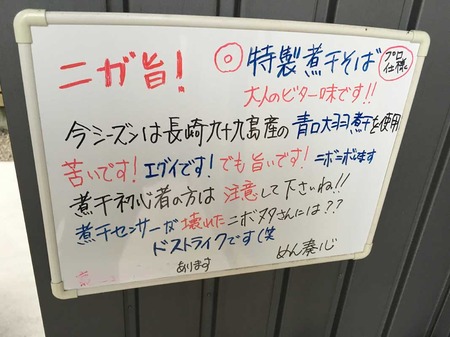 ニガ旨！ ◎特製煮干そば プロ仕様
大人のビター味です！！
今シーズンは長崎九十九島産の青口大羽煮干を使用
苦いです！エグイです！でも旨いです！ニボニボします
煮干初心者の方は注意して下さいね！！
煮干センサーが壊れたニボヲタさんには？？
ドストライクです(笑
あります めん奏心